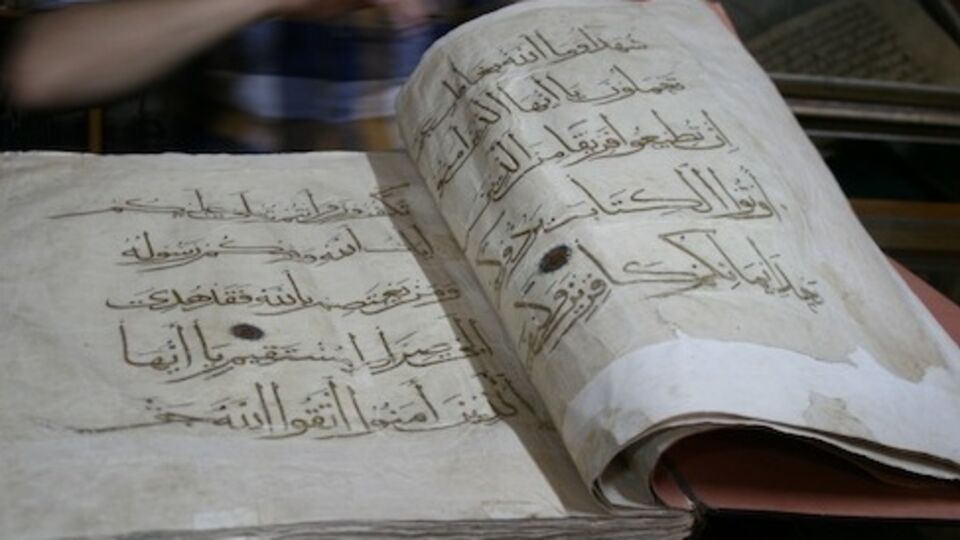 شهدا وما الله بغافل عما
تعملون يا أيها الذين آمنوا
إن تطيعوا فريقا من الذين
أوتوا الكتاب يردوكم
بعد إيمانكم كافرين وكيف
تكفرون وأنتم تتلى عليكم
آيات الله وفيكم رسوله
ومن يعتصم بالله فقد هدي
إلى صراط مستقيم يا أيها
الذين آمنوا اتقوا الله حق